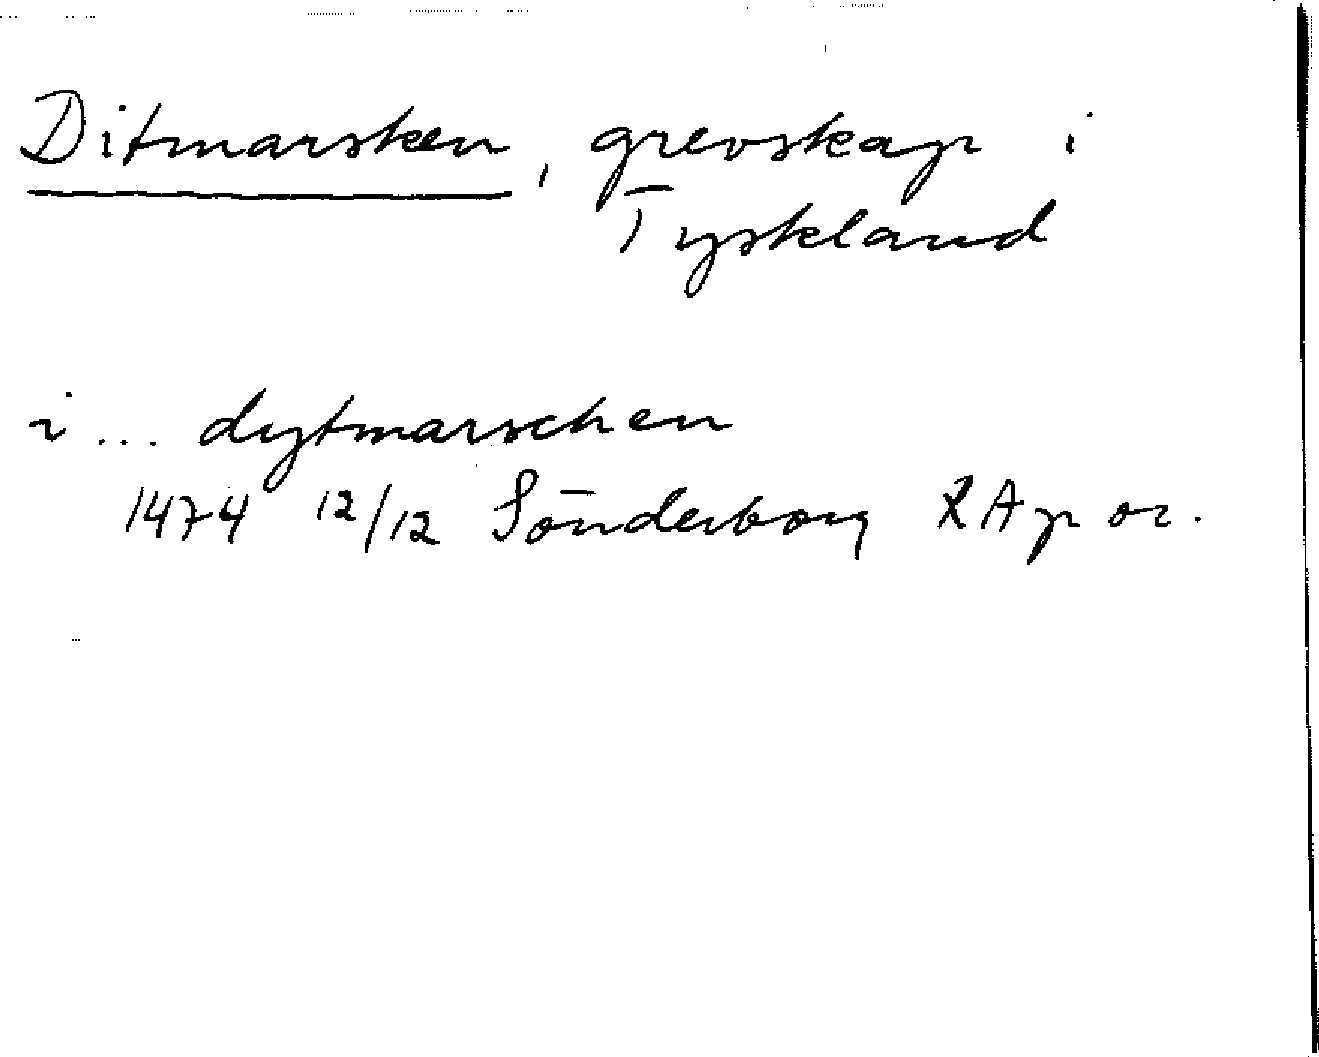 Ditmarsken, grevskap i
Tyskland
i ... dytmarschen
1474 12/12 Sönderborg RAp or.